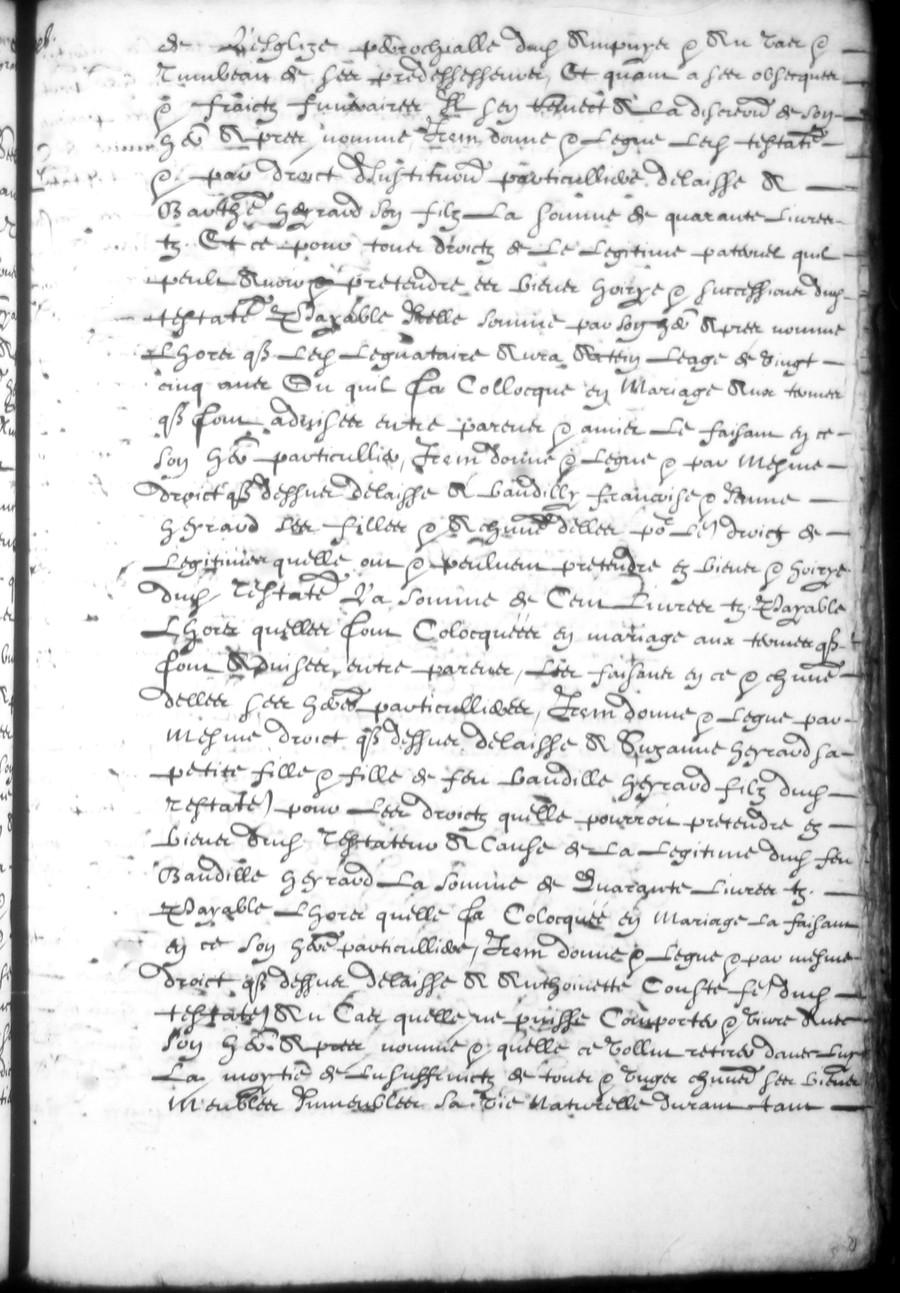 de L'esglize parochialle dud Ampuyx & Au vaer &
Tumbeau de ses predessesseurs, Et quant a ses obsecques
& fraictz funeraires Il sen remect A La discretion de son
her A pres nomme, Item donne & Legue Led testate
& par droict d'Institution particulliere delaisse A
Barthe Heyraud son filz La somme de quarante Livres
tz Et ce pour tous droictz de Le Legitime paternel quil
peult Avoir & pretendre es biens hoirye & successions dud
testate Payable Icelle somme par son her A pres nomme
Lhores qs Led Leguataire Aura Actein Leage de vingt
cinq ans Ou quil sa Collocque en Mariage Aux termes
qs sont advises entre parens & amies Le faisant en ce
son her particullier, Item donne & Legue & par Mesme
droict qs dessus delaisse A baudilly francoise & Janne
Heyraud ses filles & A chune delles po Les droictz de
Legitimes quelle ont & peulvent pretendre ez biens & hoirye
dud Testate La somme de Cent Livres tz Payable
Lhores quelles sont Colocquees en mariage aux termes qs
sont Advises, entre parens, Les faisant en ce & chune
delles ses heres particullieres, Item donne & Legue par
Mesme droict qs dessus delaisse A Suzanne Heyraud sa
petite fille & fille de feu baudille Heyraud filz dud
Testate pour Les droictz quelle pourroit pretendre ez
biens dud Testateur A Cause de La Legitime dud feu
Baudille Heyraud La somme de Quarante Livres tz.
Payable Lhores quelle sa Colocquee en Mariage La faisant
en ce son here particulliere, Item donne & Legue & par mesme
droict qs dessus delaisse A Anthoinette Couste fe dud
testate Au Cas quelle ne puisse Comporter & vivre Avec
son her A pres nomme & quelle ce vollut retirer davec Luy
La moytie de Lusuffruictz de tous & vnger chuned ses biens
Meubles Immeubles sa vie Naturelle durant tant